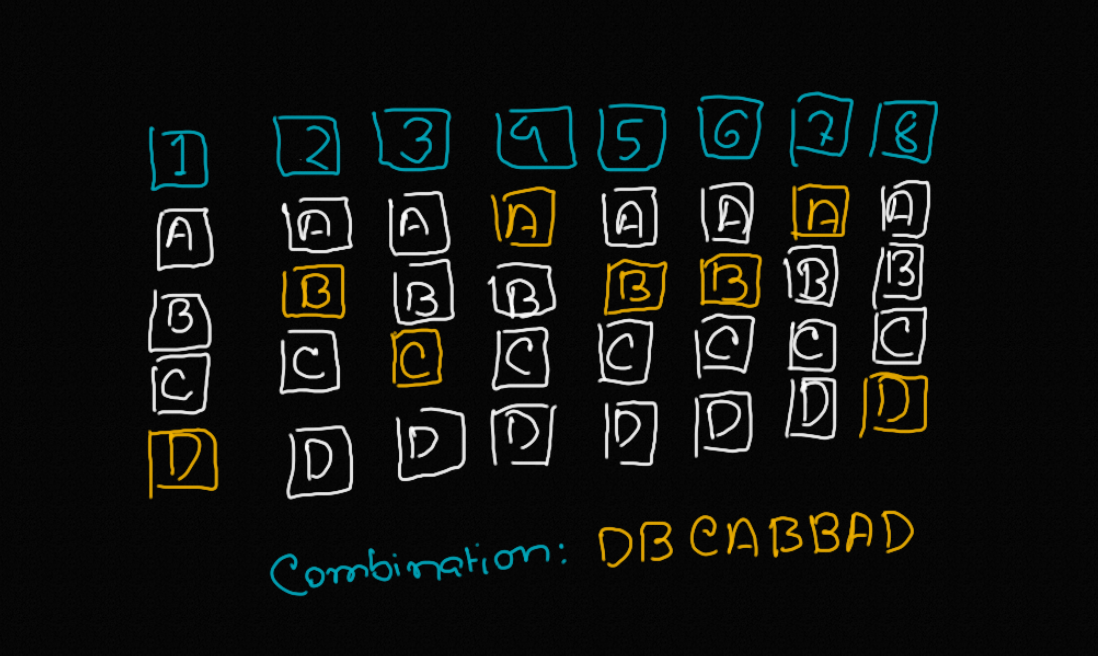 1 2 3 4 5 6 7 8
A A A A A A A A
B B B B B B B B
C C C C C C C C
D D D D D D D D
Combination: DBCABBAD